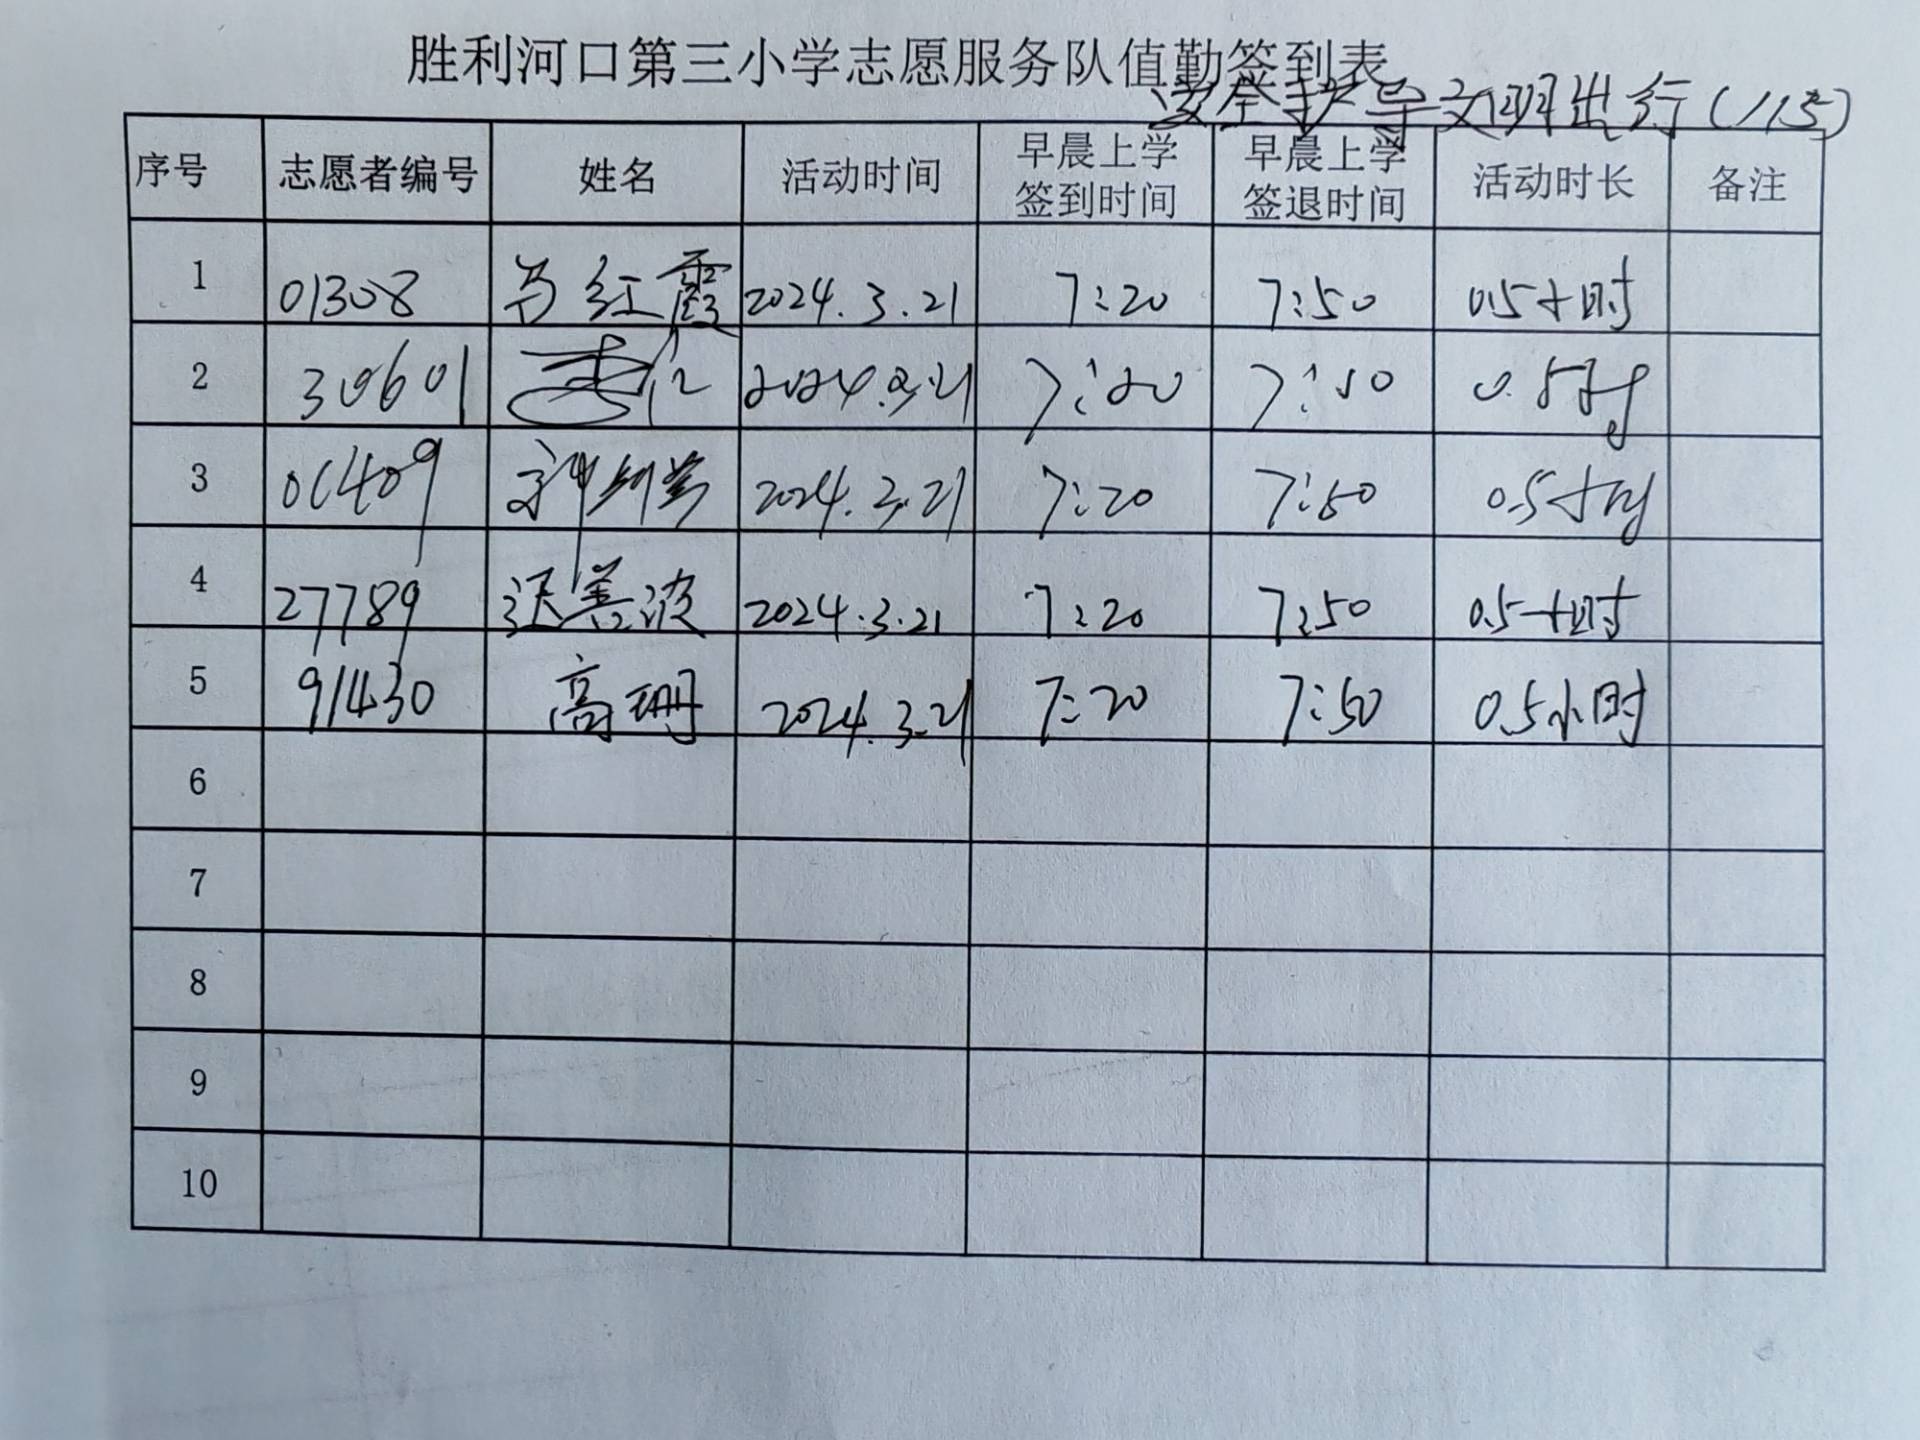 胜利河口第三小学志愿服务队值勤签到表
安全护导文明出行(115)
序号 志愿者编号 姓名 活动时间 早晨上学签到时间 早晨上学签退时间 活动时长 备注
1 01308 马红霞 2024.3.21 7:20 7:50 0.5小时
2 30601 2024.3.21 7:20 7:50 0.5小时
3 01409 2024.3.21 7:20 7:50 0.5小时
4 27789 迟善波 2024.3.21 7:20 7:50 0.5小时
5 91430 高珊 2024.3.21 7:20 7:50 0.5小时
6
7
8
9
10